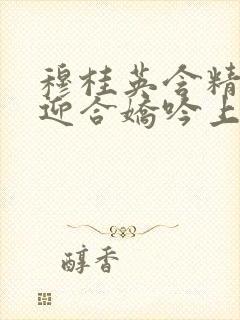 穆桂英含精
迎合娇吟上
醇香